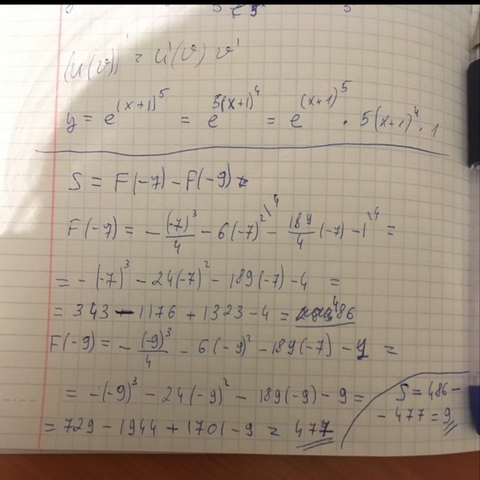 (u(v))' = u'(v) v'
y = e^(x+1)^5 = e^5(x+1)^4 = e^(x+1)^5 · 5(x+1)^4 · 1
S = F(-7) - F(-9)
F(-7) = -(-7)^3/4 - 6(-7)^2\4 - 189/4 (-7) - 1\4 =
= -(-7)^3 - 24(-7)^2 - 189(-7) - 4 =
= 343 - 1176 + 1323 - 4 = 486
F(-9) = -(-9)^3/4 - 6(-9)^2 - 189(-7) - 9 =
= -(-9)^3 - 24(-9)^2 - 189(-9) - 9 =
= 729 - 1944 + 1701 - 9 = 477
S = 486 -
- 477 = 9